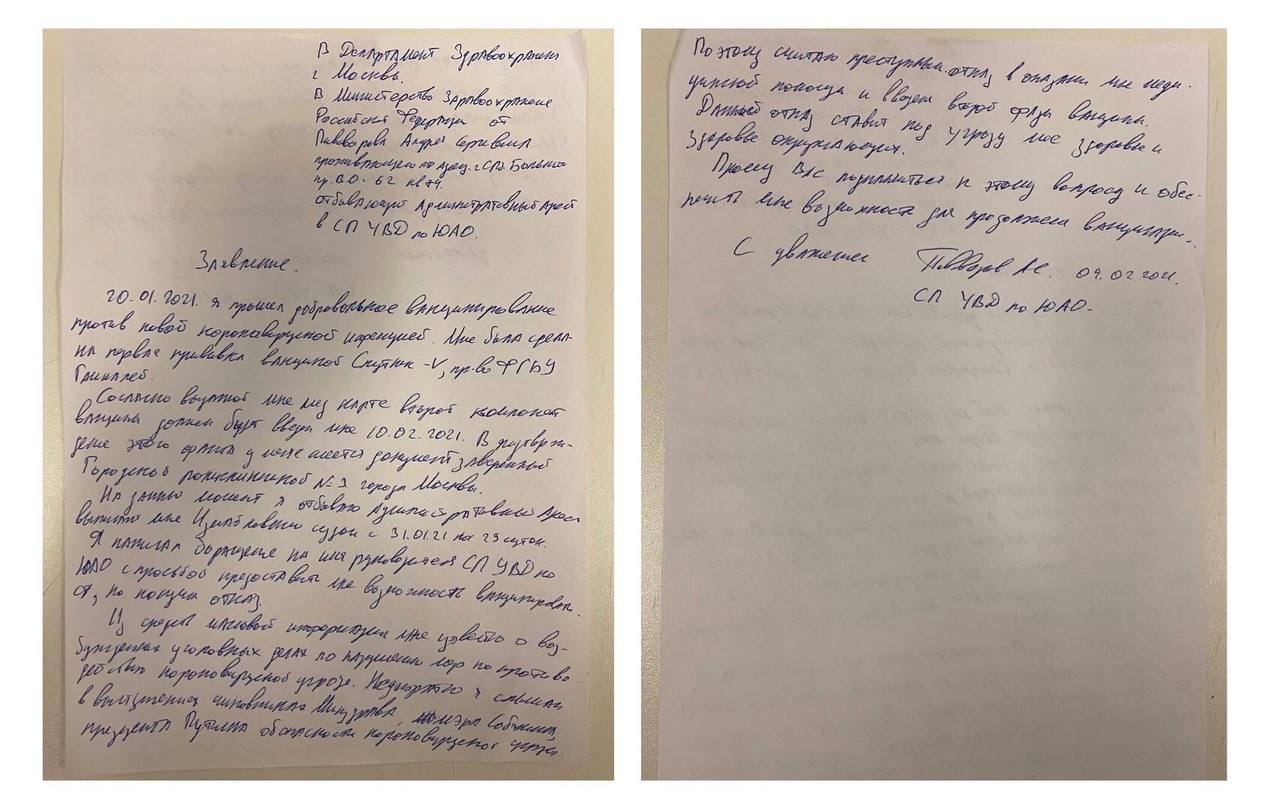 В Департамент Здравоохранения
г. Москвы.
В Министерство Здравоохранения
Российской Федерации от
Пивоварова Андрея Сергеевича
проживающего по адресу: г. СПб. Большой
пр. В.О. 62 кв 74.
отбывающего Административный Арест
в СП УВД по ЮАО.
Заявление.
20.01.2021. я прошел добровольное вакцинирование
против новой коронавирусной инфекцией. Мне была сдела-
на первая прививка вакциной Спутник-V, пр-во ФГБУ
Гамалей.
Согласно выданой мне мед карте второй компонент
вакцины должен будет введен мне 10.02.2021. В подтверж-
дение этого факта у меня имеется документ заверенный
Городской поликлиникой №3 города Москвы.
На данный момент я отбываю Административный Арест
мне судом с 31.01.21 на суток.
Я написал обращение на имя руководителя СП УВД по
ЮАО с просьбой предоставить мне возможность вакцинирован-
ся, но получил отказ.
Из средств массовой информации мне известно о воз-
бужденных уголовных делах по нарушению мер по противо-
действию коронавирусной угрозе. Неоднократно я слышал
в выступлениях чиновников Минздрава, мэра Собянина,
президента Путина об опасности коронавирусной угрозы
Поэтому считаю преступным отказ в оказании мне меди-
цинской помощи и вводом второй фазы вакцины.
Данный отказ ставит под угрозу мое здоровье и
здоровье окружающих.
Прошу Вас подключиться к этому вопросу и обес-
печить мне возможность для продолжения вакцинации.
С уважением Пивоваров А.С. 04.02.2021.
СП УВД по ЮАО.